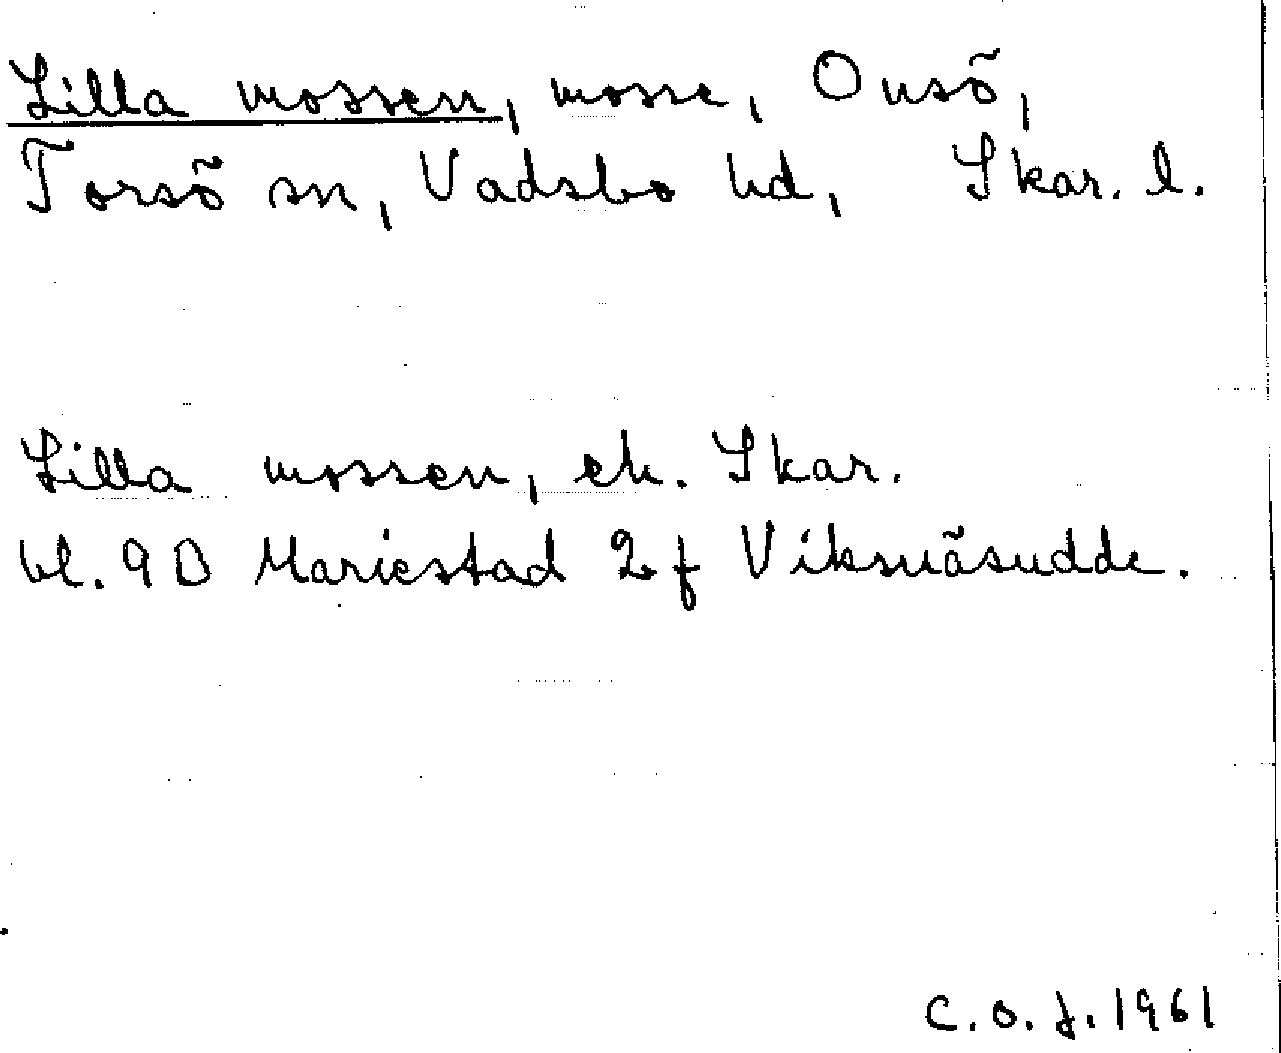 Lilla mossen, mosse, Onsö,
Torsö sn, Vadsbo hd, Skar. l.
Lilla mossen, ek. Skar.
bl. 9D Mariestad 2f Viksnäsudde.
C.O.J. 1961